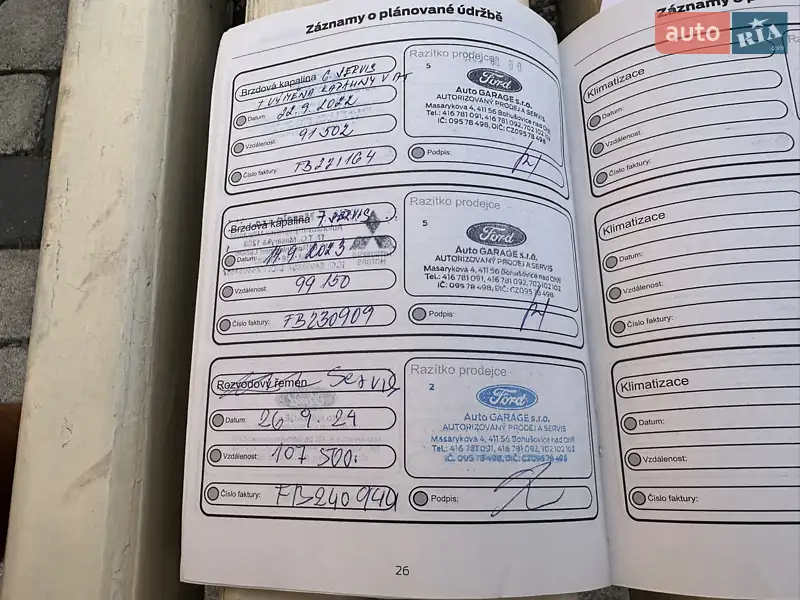 Záznamy o plánované údržbě
Brzdová kapalina 6. SERVIS
+ VÝMĚNA KAPALINY V AT
Datum: 22.9.2022
Vzdálenost: 91 502
Číslo faktury: FB221164
Razítko prodejce
5
Ford
Auto GARAGE s.r.o.
AUTORIZOVANÝ PRODEJ A SERVIS
Masarykova 4, 411 56 Bohušovice nad Ohří
Tel.: 416 781 091, 416 781 092, 702 102 102
IČ: 095 78 498, DIČ: CZ095 78 498
Podpis:
Brzdová kapalina 7. SERVIS
Datum: 14.9.2023
Vzdálenost: 99 150
Číslo faktury: FB230909
Razítko prodejce
5
Ford
Auto GARAGE s.r.o.
AUTORIZOVANÝ PRODEJ A SERVIS
Masarykova 4, 411 56 Bohušovice nad Ohří
Tel.: 416 781 091, 416 781 092, 702 102 102
IČ: 095 78 498, DIČ: CZ095 78 498
Podpis:
Rozvodový řemen Servis
Datum: 26.9.24
Vzdálenost: 107 500
Číslo faktury: FB240940
Razítko prodejce
2
Ford
Auto GARAGE s.r.o.
AUTORIZOVANÝ PRODEJ A SERVIS
Masarykova 4, 411 56 Bohušovice nad Ohří
Tel.: 416 781 091, 416 781 092, 702 102 102
IČ: 095 78 498, DIČ: CZ095 78 498
Podpis:
26
Záznamy o
Klimatizace
Datum:
Vzdálenost:
Číslo faktury:
Klimatizace
Datum:
Vzdálenost:
Číslo faktury:
Klimatizace
Datum:
Vzdálenost:
Číslo faktury:
auto RIA
.com